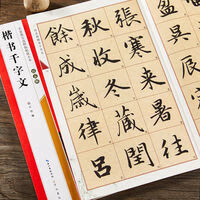 盈昃辰
張寒來暑往
秋收冬藏閏
餘成歲律呂
楷书千字文